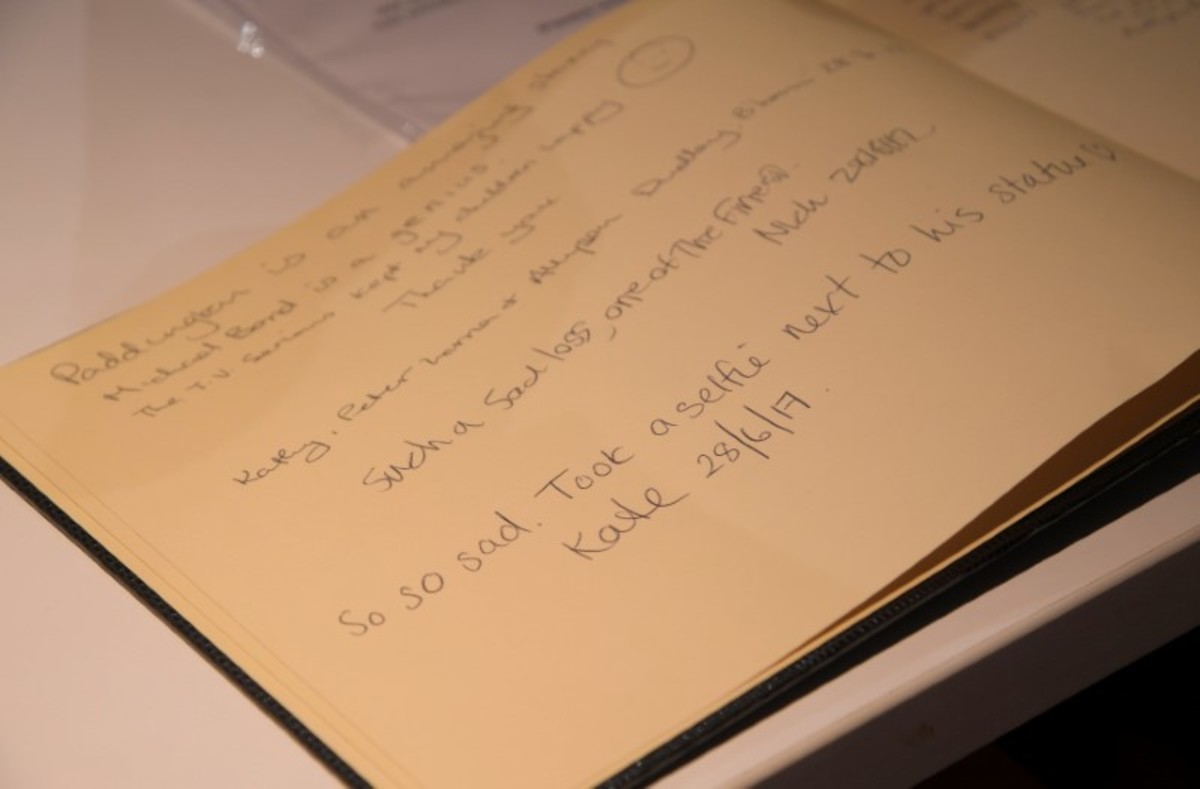 Paddington is an amazing story
Michael Bond is a genius.
The T.V Serious kept my children happy
Thank you
Katey, Peter Lorna + Dudley,
Such a Sad loss, one of The Finest.
Nick
So so sad. Took a selfie next to his statue
Kate 28/6/17.